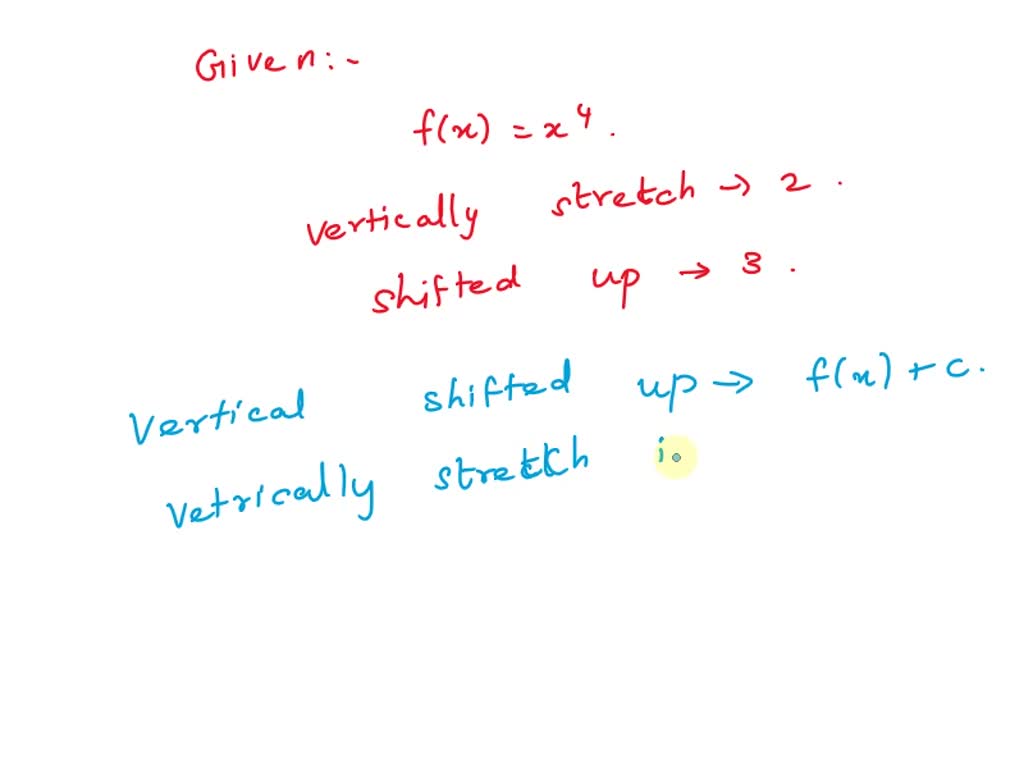 Given:-
f(x) = x⁴.
vertically stretch → 2.
shifted up → 3.
Vertical shifted up → f(x) + c.
vetrically stretch i